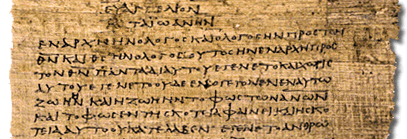 ΕΥΑΓΓΕΛΙΟΝ
ΤΑΙΩΑΝΝΗΝ
ΕΝΑΡΧΗΗΝΟΛΟΓΟCΚΑΙΟΛΟΓΟCΗΝΠΡΟCΤΟΝ
ΘΝΚΑΙΘCΗΝΟΛΟΓΟCΟΥΤΟCΗΝΕΝΑΡΧΗΠΡΟC
ΤΟΝΘΝΠΑΝΤΑΔΙΑΥΤΟΥΕΓΕΝΕΤΟΚΑΙΧΩΡΙC
ΑΥΤΟΥΕΓΕΝΕΤΟΥΔΕΝΟΓΕΓΟΝΕΝΕΝΑΥΤΩ
ΖΩΗΗΝΚΑΙΗΖΩΗΗΝΤΟΦΩCΤΩΝΑΝΩΝ
ΚΑΙΤΟΦΩCΕΝΤΗCΚΟΤΙΑΦΑΙΝΕΙΚΑΙΗCΚΟ
ΤΕΙΑΑΥΤΟΟΥΚΑΤΕΛΑΒΕΝ ΕΓΕΝΕΤΟΑΝΘΡΩ